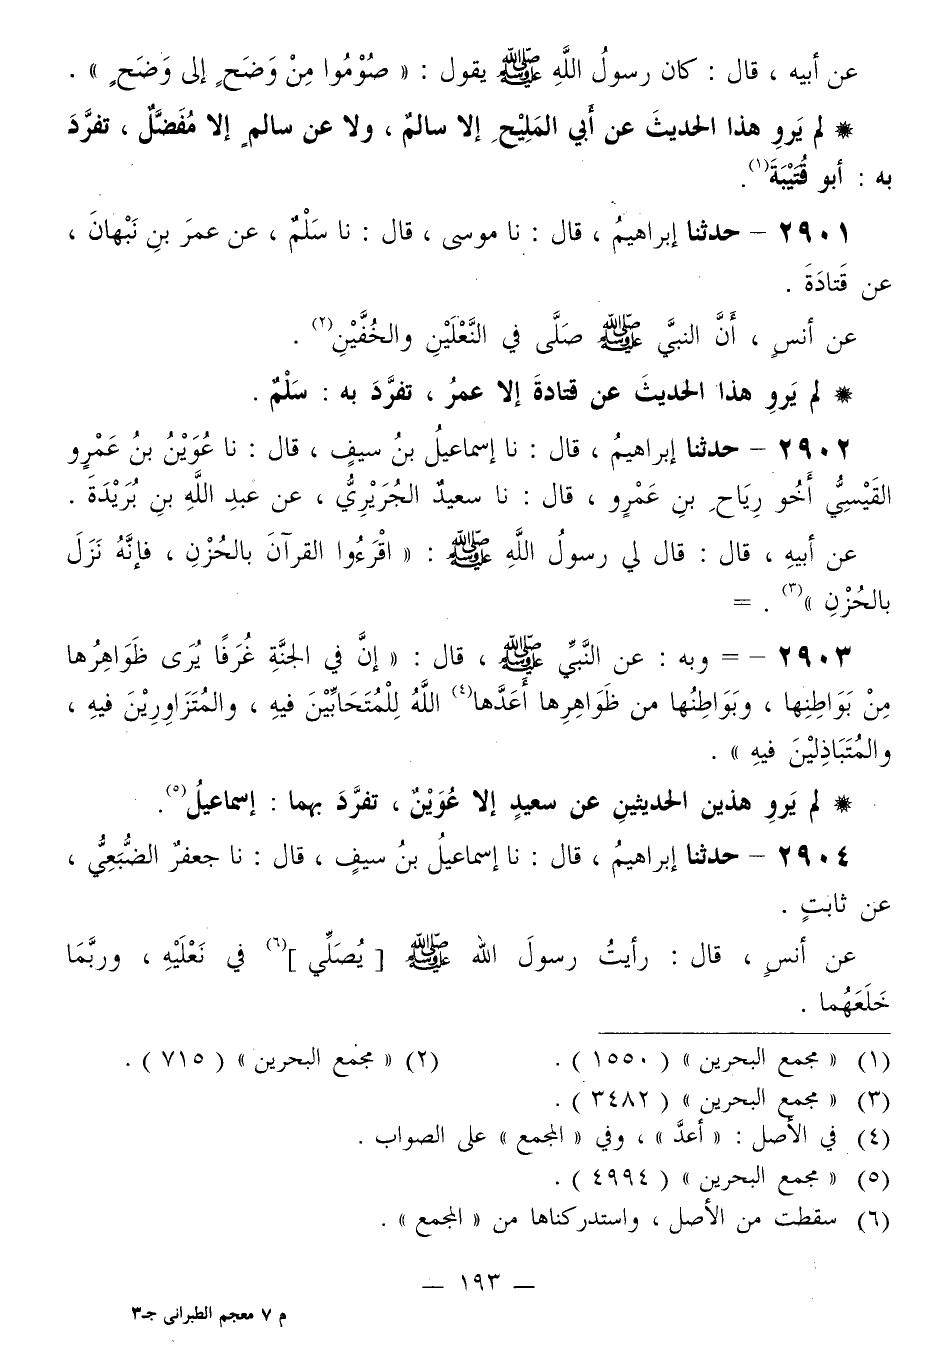 عن أبيه ، قال : كان رسولُ اللَّهِ ﷺ يقول : « صُوْمُوا مِنْ وَضَحٍ إلى وَضَحٍ » .
✷ لم يَروِ هذا الحديثَ عن أَبي المَلِيْحِ إلا سالمٌ ، ولا عن سالمٍ إلا مُفَضَّلٌ ، تفرَّدَ
به : أبو قُتَيْبَةَ(١).
٢٩٠١ – حدثنا إبراهيمُ ، قال : نا موسى ، قال : نا سَلْمٌ ، عن عمرَ بنِ نَبْهانَ ،
عن قَتادَةَ .
عن أنسٍ ، أَنَّ النبيَّ ﷺ صَلَّى في النَّعْلَيْنِ والخُفَّيْنِ(٢) .
✷ لم يَروِ هذا الحديثَ عن قتادةَ إلا عمرُ ، تفرَّدَ به : سَلْمٌ .
٢٩٠٢ – حدثنا إبراهيمُ ، قال : نا إسماعيلُ بنُ سيفٍ ، قال : نا عُوَيْنُ بنُ عَمْرٍو
القَيْسِيُّ أَخُو رِيَاحِ بنِ عَمْرٍو ، قال : نا سعيدٌ الجُرَيْرِيُّ ، عن عبدِ اللَّهِ بنِ بُرَيْدَةَ .
عن أبيهِ ، قال : قال لي رسولُ اللَّهِ ﷺ : « اقْرَءُوا القرآنَ بالحُزْنِ ، فإنَّهُ نَزَلَ
بالحُزْنِ »(٣) . =
٢٩٠٣ – = وبه : عن النَّبيِّ ﷺ ، قال : « إنَّ في الجنَّةِ غُرَفًا يُرَى ظَوَاهِرُها
مِنْ بَوَاطِنِها ، وبَوَاطِنُها من ظَوَاهِرِها أَعَدَّها(٤) اللَّهُ لِلْمُتَحَابِّيْنَ فيهِ ، والمُتَزَاوِرِيْنَ فيهِ ،
والمُتَبَاذِلِيْنَ فيهِ » .
✷ لم يَروِ هذين الحديثينِ عن سعيدٍ إلا عُوَيْنٌ ، تفرَّدَ بهما : إسماعيلُ(٥).
٢٩٠٤ – حدثنا إبراهيمُ ، قال : نا إسماعيلُ بنُ سيفٍ ، قال : نا جعفرٌ الضُّبَعِيُّ ،
عن ثابتٍ .
عن أنسٍ ، قال : رأيتُ رسولَ الله ﷺ [ يُصَلِّي ](٦) في نَعْلَيْهِ ، وربَّمَا
خَلَعَهُما .
(١) « مجمع البحرين » ( ١٥٥٠ ) . (٢) « مجمع البحرين » ( ٧١٥ ) .
(٣) « مجمع البحرين » ( ٣٤٨٢ ) .
(٤) في الأصل : « أعدَّ » ، وفي « المجمع » على الصواب .
(٥) « مجمع البحرين » ( ٤٩٩٤ ) .
(٦) سقطت من الأصل ، واستدركناها من « المجمع » .
— ١٩٣ —
م ٧ معجم الطبرانى جـ٣